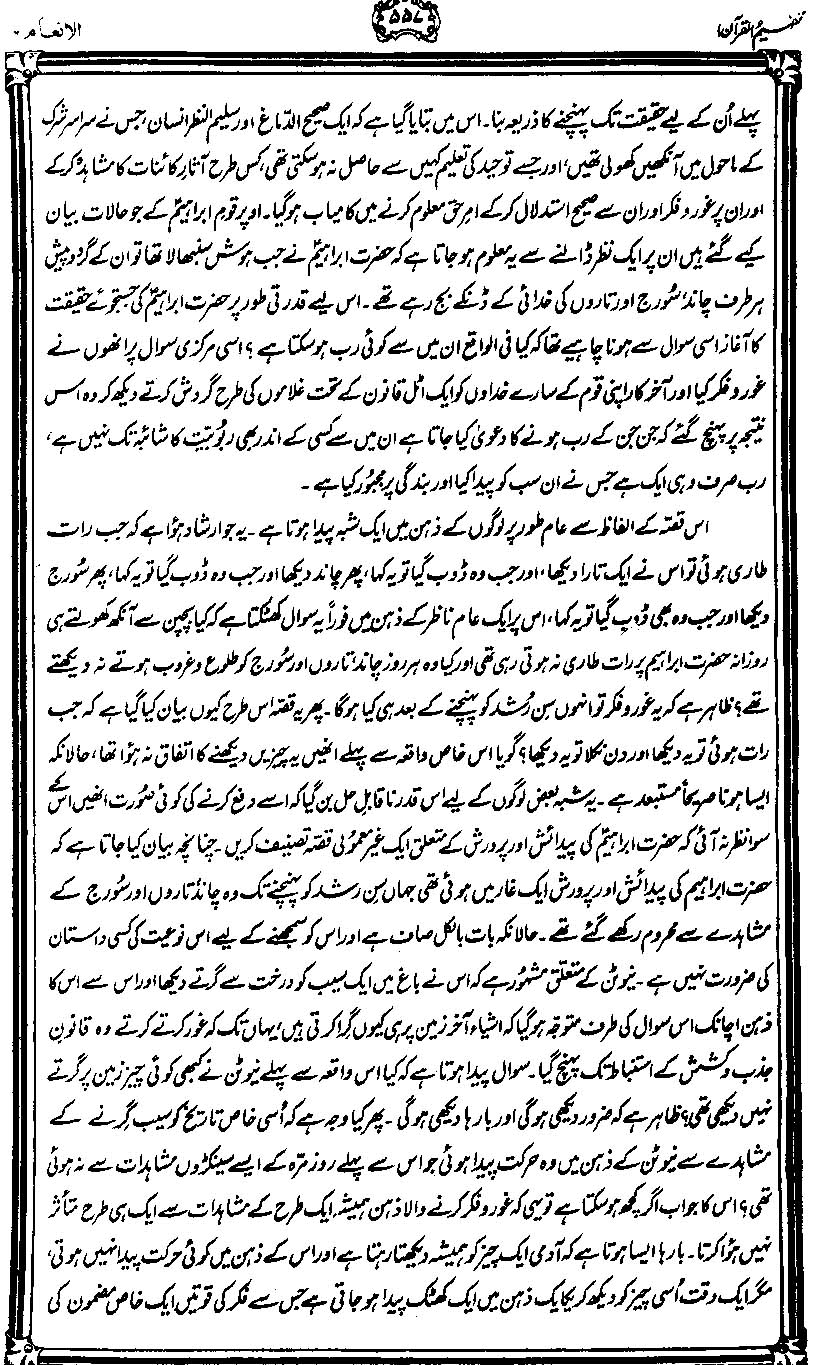 تفہیم القرآن ۱
۵۵۷
الانعام ۶
پہلے اُن کے لیے حقیقت تک پہنچنے کا ذریعہ بنا۔ اس میں بتایا گیا ہے کہ ایک صحیح الدّماغ اور سلیم النظر انسان، جس نے سراسر شرک
کے ماحول میں آنکھیں کھولی تھیں، اور جسے توحید کی تعلیم کہیں سے حاصل نہ ہو سکتی تھی، کس طرح آثارِ کائنات کا مشاہدہ کرکے
اور ان پر غور و فکر اور ان سے صحیح استدلال کرکے امرِ حق معلوم کرنے میں کامیاب ہوگیا۔ اوپر قومِ ابراہیمؑ کے جو حالات بیان
کیے گئے ہیں ان پر ایک نظر ڈالنے سے یہ معلوم ہو جاتا ہے کہ حضرت ابراہیمؑ نے جب ہوش سنبھالا تھا تو ان کے گرد و پیش
ہر طرف چاند، سُورج اور تاروں کی خدائی کے ڈنکے بج رہے تھے۔ اس لیے قدرتی طور پر حضرت ابراہیمؑ کی جستجوئے حقیقت
کا آغاز اسی سوال سے ہونا چاہیے تھا کہ کیا فی الواقع ان میں سے کوئی رب ہو سکتا ہے؟ اسی مرکزی سوال پر انھوں نے
غور و فکر کیا اور آخر کار اپنی قوم کے سارے خداوں کو ایک اٹل قانون کے تحت غلاموں کی طرح گردش کرتے دیکھ کر وہ اس
نتیجہ پر پہنچ گئے کہ جن جن کے رب ہونے کا دعویٰ کیا جاتا ہے ان میں سے کسی کے اندر بھی ربُوبیّت کا شائبہ تک نہیں ہے،
رب صرف وہی ایک ہے جس نے ان سب کو پیدا کیا اور بندگی پر مجبُور کیا ہے۔
اس قصّہ کے الفاظ سے عام طور پر لوگوں کے ذہن میں ایک شبہ پیدا ہوتا ہے۔ یہ جو ارشاد ہؤا ہے کہ جب رات
طاری ہوئی تو اس نے ایک تارا دیکھا، اور جب وہ ڈوب گیا تو یہ کہا، پھر چاند دیکھا اور جب وہ ڈوب گیا تو یہ کہا، پھر سُورج
دیکھا اور جب وہ بھی ڈوب گیا تو یہ کہا، اس پر ایک عام ناظر کے ذہن میں فوراً یہ سوال کھٹکتا ہے کہ کیا بچپن سے آنکھ کھولتے ہی
روزانہ حضرت ابراہیم پر رات طاری نہ ہوتی رہی تھی اور کیا وہ ہر روز چاند تاروں اور سُورج کو طلوع و غروب ہوتے نہ دیکھتے
تھے؟ ظاہر ہے کہ یہ غور و فکر تو انہوں سنِ رُشد کو پہنچنے کے بعد ہی کیا ہوگا۔ پھر یہ قصّہ اس طرح کیوں بیان کیا گیا ہے کہ جب
رات ہوئی تو یہ دیکھا اور دن نکلا تو یہ دیکھا؟ گویا اس خاص واقعہ سے پہلے انھیں یہ چیزیں دیکھنے کا اتفاق نہ ہؤا تھا، حالانکہ
ایسا ہونا صریحاً مستبعد ہے۔ یہ شبہ بعض لوگوں کے لیے اس قدر ناقابلِ حل بن گیا کہ اسے دفع کرنے کی کوئی صُورت انھیں اس کے
سوا نظر نہ آئی کہ حضرت ابراہیمؑ کی پیدائش اور پرورش کے متعلق ایک غیر معمُولی قصّہ تصنیف کریں۔ چنانچہ بیان کیا جاتا ہے کہ
حضرت ابراہیم کی پیدائش اور پرورش ایک غار میں ہوئی تھی جہاں سنِ رشد کو پہنچنے تک وہ چاند تاروں اور سُورج کے
مشاہدے سے محروم رکھے گئے تھے۔ حالانکہ بات بالکل صاف ہے اور اس کو سمجھنے کے لیے اس نوعیت کی کسی داستان
کی ضرورت نہیں ہے۔ نیوٹن کے متعلق مشہُور ہے کہ اس نے باغ میں ایک سیب کو درخت سے گرتے دیکھا اور اس سے اس کا
ذہن اچانک اس سوال کی طرف متوجّہ ہوگیا کہ اشیاء آخر زمین پر ہی کیوں گِرا کرتی ہیں، یہاں تک کہ غور کرتے کرتے وہ قانونِ
جذب و کشش کے استنباط تک پہنچ گیا۔ سوال پیدا ہوتا ہے کہ کیا اس واقعہ سے پہلے نیوٹن نے کبھی کوئی چیز زمین پر گرتے
نہیں دیکھی تھی؟ ظاہر ہے کہ ضرور دیکھی ہوگی اور بارہا دیکھی ہوگی۔ پھر کیا وجہ ہے کہ اُسی خاص تاریخ کو سیب گِرنے کے
مشاہدے سے نیوٹن کے ذہن میں وہ حرکت پیدا ہوئی جو اس سے پہلے روز مرّہ کے ایسے سینکڑوں مشاہدات سے نہ ہوئی
تھی؟ اس کا جواب اگر کچھ ہو سکتا ہے تو یہی کہ غور و فکر کرنے والا ذہن ہمیشہ ایک طرح کے مشاہدات سے ایک ہی طرح متأثر
نہیں ہؤا کرتا۔ بارہا ایسا ہوتا ہے کہ آدمی ایک چیز کو ہمیشہ دیکھتا رہتا ہے اور اس کے ذہن میں کوئی حرکت پیدا نہیں ہوتی،
مگر ایک وقت اُسی چیز کو دیکھ کر یکایک ذہن میں ایک کھٹک پیدا ہو جاتی ہے جس سے فکر کی قوتیں ایک خاص مضمون کی